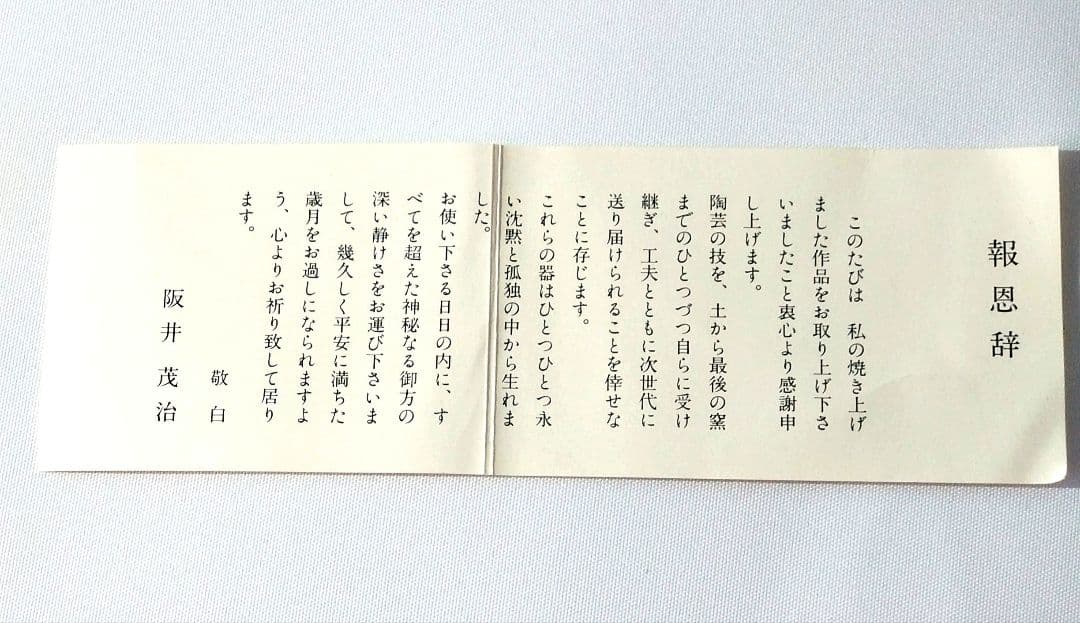 報恩辞
このたびは　私の焼き上げ
ました作品をお取り上げ下さ
いましたこと衷心より感謝申
し上げます。
陶芸の技を、土から最後の窯
までのひとつづつ自らに受け
継ぎ、工夫とともに次世代に
送り届けられることを倖せな
ことに存じます。
これらの器はひとつひとつ永
い沈黙と孤独の中から生れま
した。
お使い下さる日日の内に、す
べてを超えた神秘なる御方の
深い静けさをお運び下さいま
して、幾久しく平安に満ちた
歳月をお過しになられますよ
う、心よりお祈り致して居り
ます。
敬白
阪井　茂治